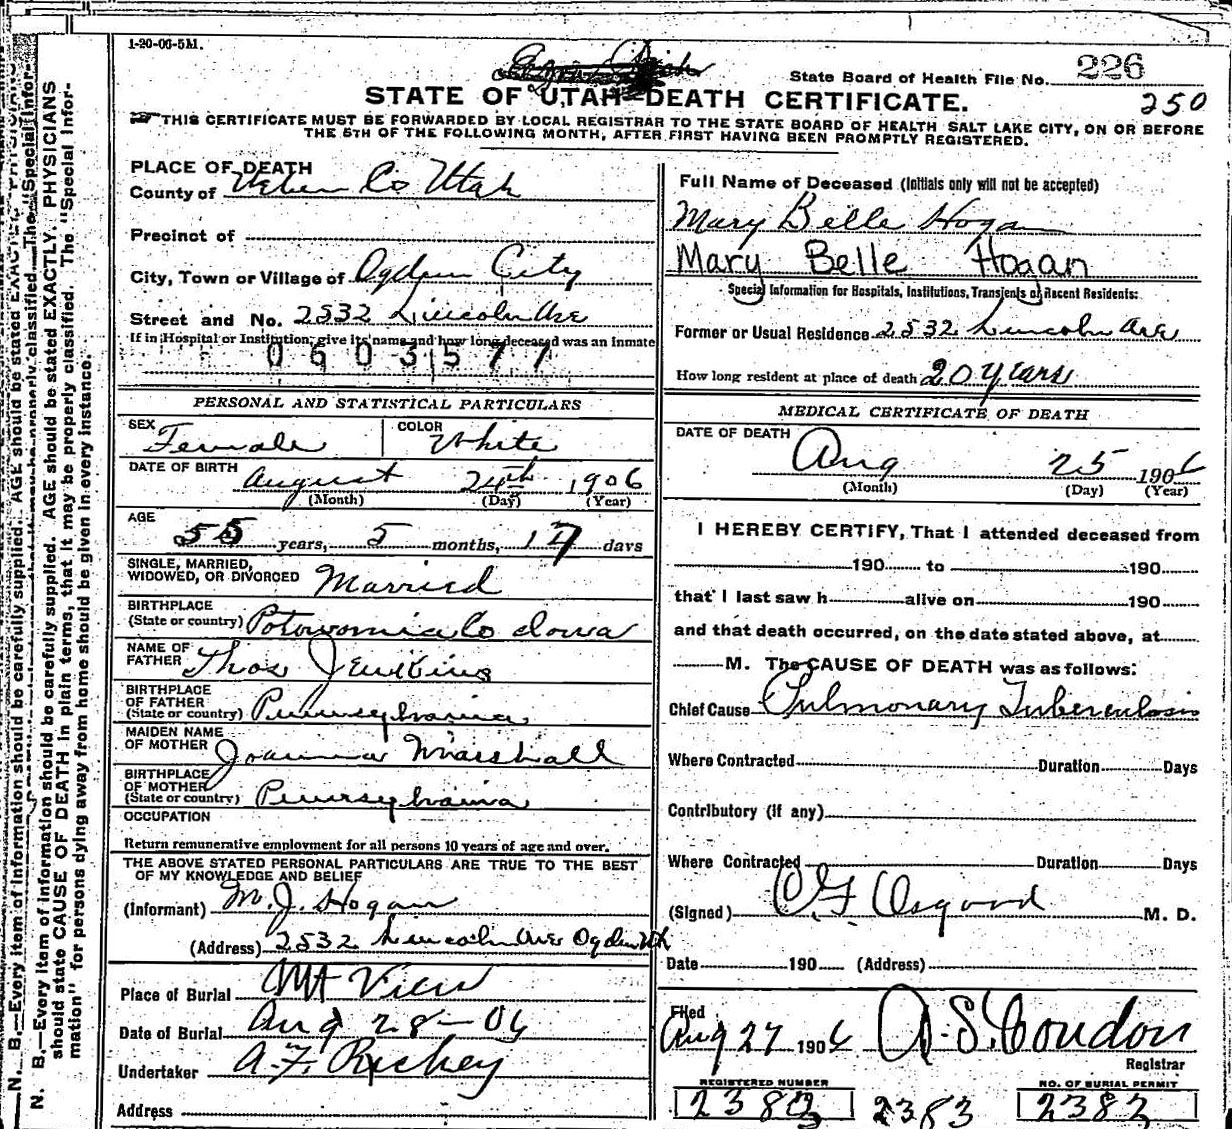 1-20-06-5M.
State Board of Health File No. 226
250
STATE OF UTAH—DEATH CERTIFICATE.
THIS CERTIFICATE MUST BE FORWARDED BY LOCAL REGISTRAR TO THE STATE BOARD OF HEALTH SALT LAKE CITY, ON OR BEFORE
THE 5TH OF THE FOLLOWING MONTH, AFTER FIRST HAVING BEEN PROMPTLY REGISTERED.
PLACE OF DEATH
County of Weber Co Utah
Precinct of
City, Town or Village of Ogden City
Street and No. 2532 Lincoln Ave
If in Hospital or Institution, give its name and how long deceased was an inmate
0603577
PERSONAL AND STATISTICAL PARTICULARS
SEX Female COLOR White
DATE OF BIRTH August 24th 1906
(Month) (Day) (Year)
AGE
55 years, 5 months, 17 days
SINGLE, MARRIED,
WIDOWED, OR DIVORCED Married
BIRTHPLACE
(State or country) Potowomia Co Iowa
NAME OF
FATHER Thos Jenkins
BIRTHPLACE
OF FATHER
(State or country) Pennsylvania
MAIDEN NAME
OF MOTHER Joanna Marshall
BIRTHPLACE
OF MOTHER
(State or country) Pennsylvania
OCCUPATION
Return remunerative employment for all persons 10 years of age and over.
THE ABOVE STATED PERSONAL PARTICULARS ARE TRUE TO THE BEST
OF MY KNOWLEDGE AND BELIEF
(Informant) M. J. Hogan
(Address) 2532 Lincoln Ave Ogden Ut
Place of Burial Mt View
Date of Burial Aug 28-06
Undertaker A. F. Richey
Address
Full Name of Deceased (Initials only will not be accepted)
Mary Belle Hogan
Mary Belle Hogan
Special Information for Hospitals, Institutions, Transients or Recent Residents:
Former or Usual Residence 2532 Lincoln Ave
How long resident at place of death 20 years
MEDICAL CERTIFICATE OF DEATH
DATE OF DEATH
Aug 25 1906
(Month) (Day) (Year)
I HEREBY CERTIFY, That I attended deceased from
190 to 190
that I last saw h alive on 190
and that death occurred, on the date stated above, at
M. The CAUSE OF DEATH was as follows:
Chief Cause Pulmonary Tuberculosis
Where Contracted Duration Days
Contributory (if any)
Where Contracted Duration Days
(Signed) Osgood M. D.
Date 190 (Address)
Filed
Aug 27 1906 A. S. Condon
Registrar
REGISTERED NUMBER NO. OF BURIAL PERMIT
2383 2383 2383
N. B.—Every item of information should be carefully supplied. AGE should be stated EXACTLY. PHYSICIANS
should state CAUSE OF DEATH in plain terms, that it may be properly classified. The "Special Infor-
mation" for persons dying away from home should be given in every instance.